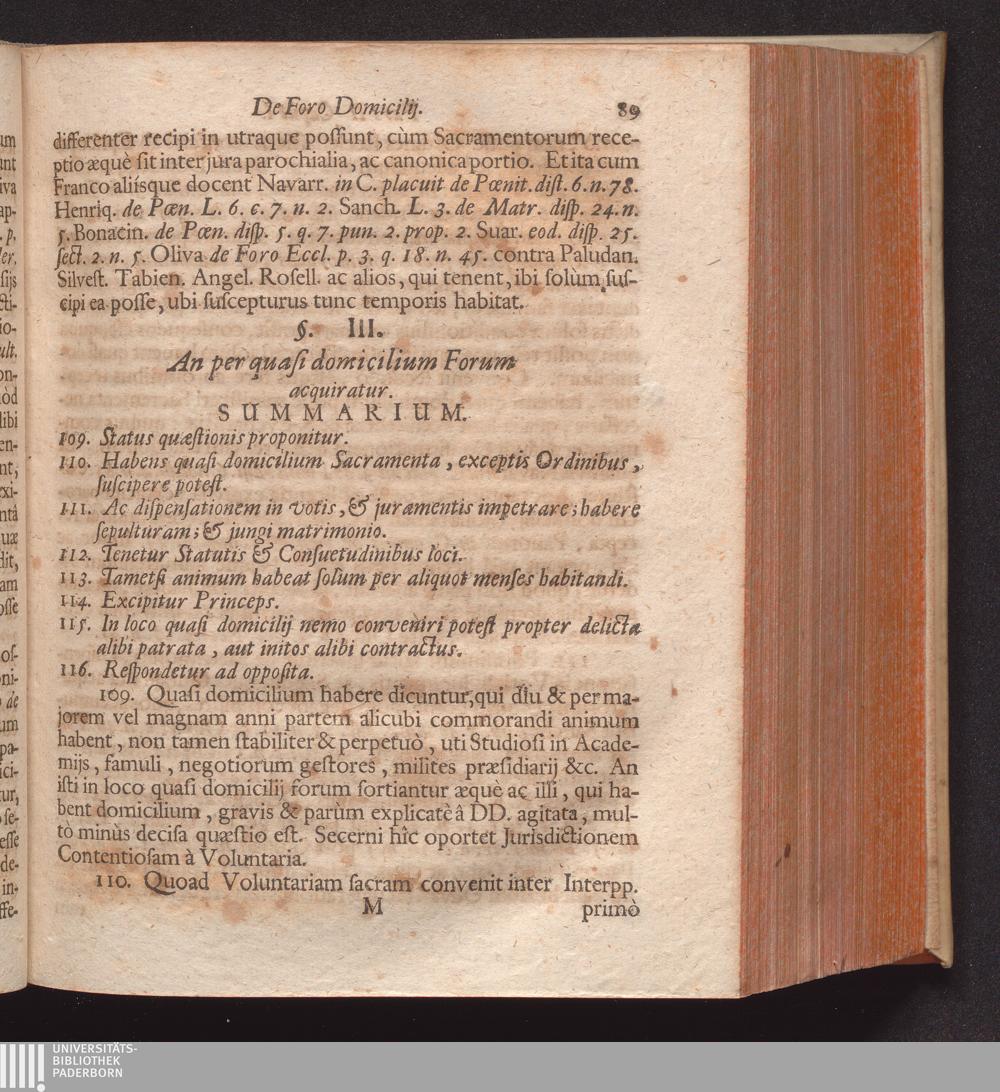 De Foro Domicilij. 89
differenter recipi in utraque possunt, cùm Sacramentorum rece-
ptio æquè sit inter jura parochialia, ac canonica portio. Et ita cum
Franco aliísque docent Navarr. in C. placuit de Pœnit. dist. 6. n. 78.
Henriq. de Pœn. L. 6. c. 7. n. 2. Sanch. L. 3. de Matr. disp. 24. n.
5. Bonacin. de Pœn. disp. 5. q. 7. pun. 2. prop. 2. Suar. eod. disp. 25.
sect. 2. n. 5. Oliva de Foro Eccl. p. 3. q. 18. n. 45. contra Paludan.
Silvest. Tabien. Angel. Rosell. ac alios, qui tenent, ibi solùm sus-
cipi ea posse, ubi suscepturus tunc temporis habitat.
§. III.
An per quasi domicilium Forum
acquiratur.
SUMMARIUM.
109. Status quæstionis proponitur.
110. Habens quasi domicilium Sacramenta, exceptis Ordinibus,
suscipere potest.
111. Ac dispensationem in votis, & juramentis impetrare; habere
sepulturam; & jungi matrimonio.
112. Tenetur Statutis & Consuetudinibus loci.
113. Tametsi animum habeat solum per aliquot menses habitandi.
114. Excipitur Princeps.
115. In loco quasi domicilij nemo conveniri potest propter delicta
alibi patrata, aut initos alibi contractus.
116. Respondetur ad opposita.
109. Quasi domicilium habere dicuntur, qui diu & per ma-
jorem vel magnam anni partem alicubi commorandi animum
habent, non tamen stabiliter & perpetuò, uti Studiosi in Acade-
mijs, famuli, negotiorum gestores, milites præsidiarij &c. An
isti in loco quasi domicilij forum sortiantur æquè ac illi, qui ha-
bent domicilium, gravis & parùm explicatè â DD. agitata, mul-
tò minùs decisa quæstio est. Secerni hîc oportet Jurisdictionem
Contentiosam à Voluntaria.
110. Quoad Voluntariam sacram convenit inter Interpp.
M primò
UNIVERSITÄTS-
BIBLIOTHEK
PADERBORN